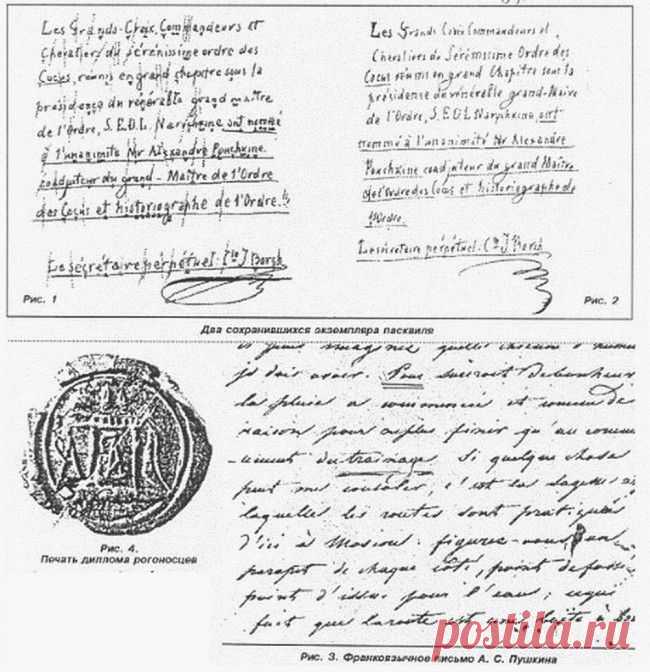 Les Grands-Croix, Commandeurs et
Chevaliers du sérénissime ordre des
Cocus, réunis en grand chapitre sous la
présidence du vénérable grand maître
de l'Ordre, S.E.D.L. Narychkine ont nommé
à l'unanimité Mr Alexandre Pouchkine
coadjuteur du grand-Maître de l'Ordre
des Cocus et historiographe de l'Ordre.
Le sécrétaire perpétuel: Cte J. Borch
Рис. 1
Les Grands Croix Commandeurs et
Chevaliers du Sérénissime Ordre des
Cocus réunis en grand Chapitre sous la
présidence du vénérable grand-Maître
de l'Ordre, S.E.D.L. Narychkine, ont
nommé à l'unanimité Mr Alexandre
Pouchkine coadjuteur du grand Maître
de l'ordre des Cocus et historiographe de
l'Ordre.
Le sécrétaire perpétuel: Cte J. Borch
Рис. 2
Два сохранившихся экземпляра пасквиля
Рис. 4.
Печать диплома рогоносцев
imaginez quelle
je dois avoir. Pour surcroit de bonheur
la pluie a commencé et comme de
raison pour ne plus finir qu'au commen
-cement du traînage. Si quelque chose
peut me consoler, c'est la sagesse
laquelle les routes sont pratiquées
d'ici à Moscou: figurez-vous un
parapet de chaque côté, point de fossé
point d'issue pour l'eau; ce qui
fait que la route est une boîte à bou
Рис. 3. Франкоязычное письмо А. С. Пушкина
postila.ru